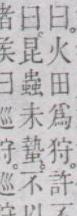 曰。火田爲狩。許
曰。昆蟲未蟄。不以
諸矦曰巡狩。巡狩